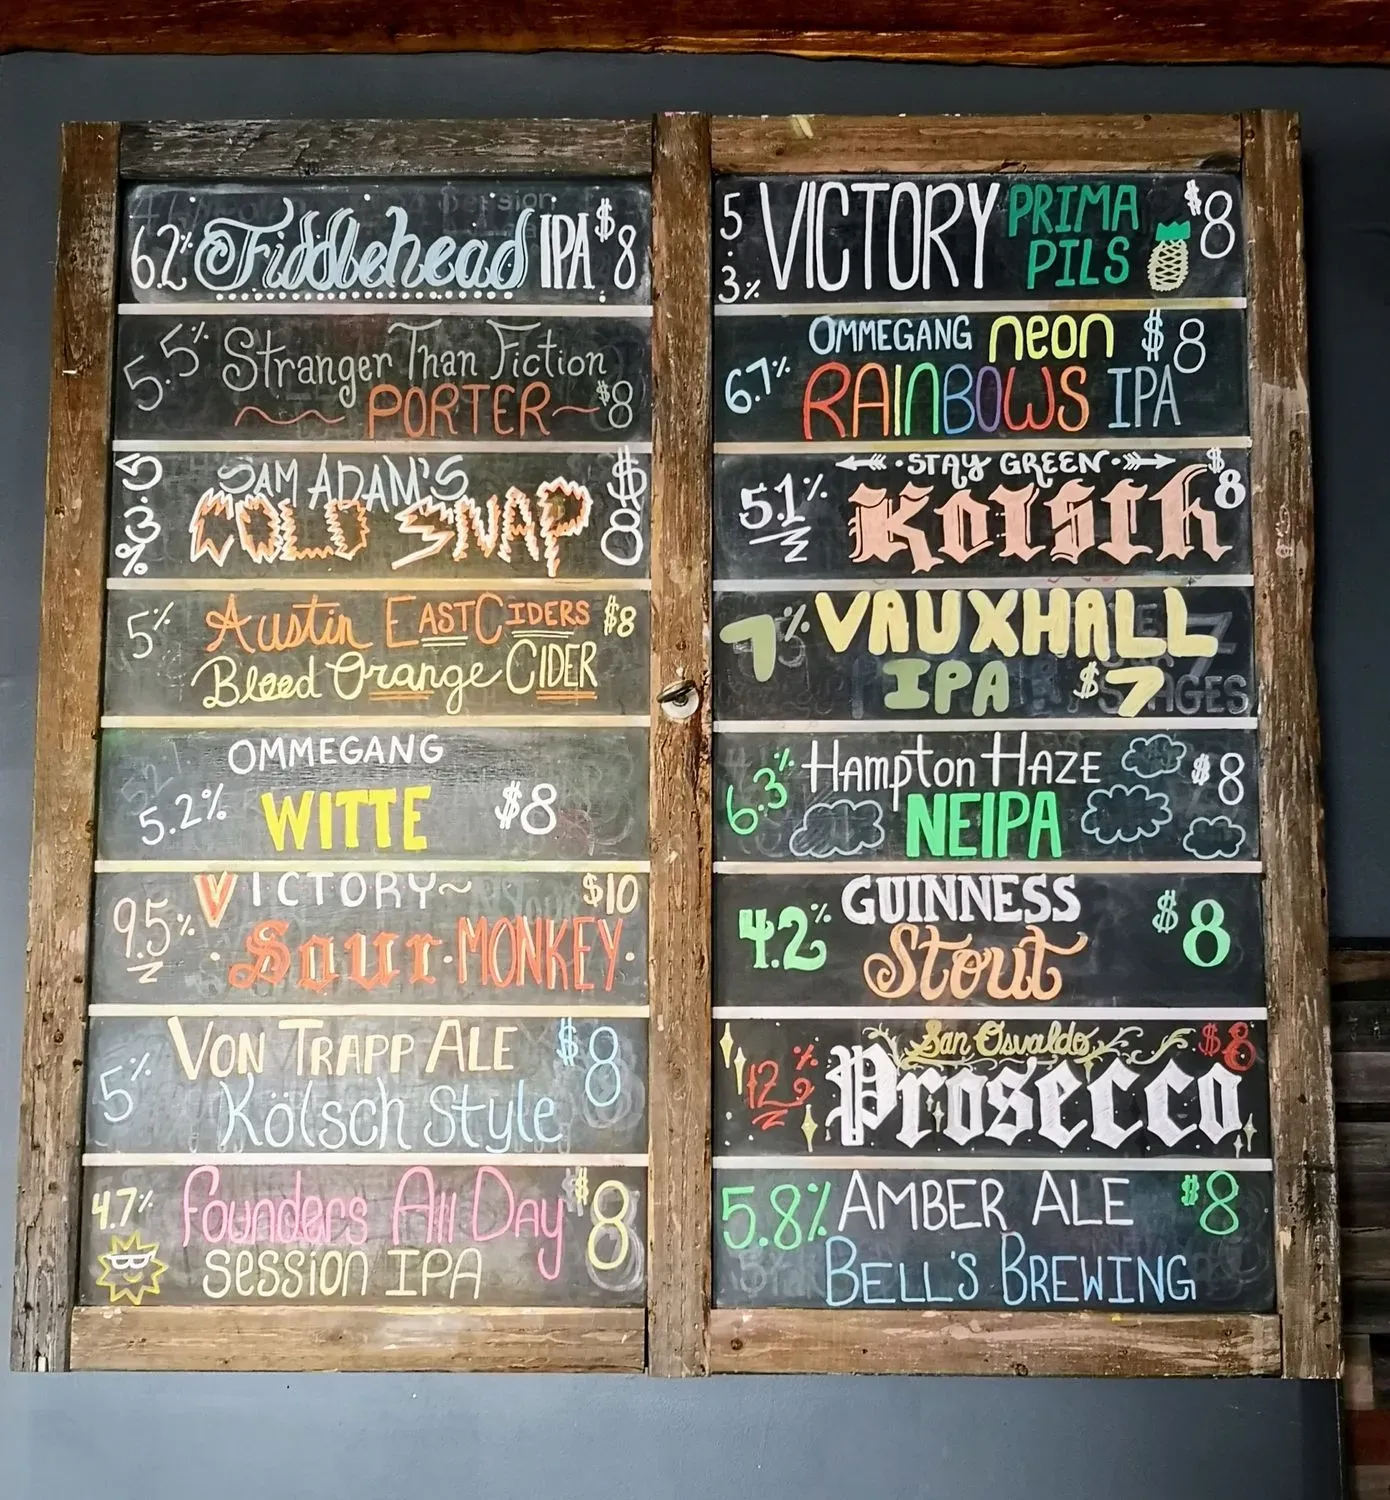 6.2% Fiddlehead IPA $8
5.5% Stranger Than Fiction
PORTER $8
SAM ADAM'S
5.3% COLD SNAP $8
5% Austin EAST CIDERS $8
Blood Orange CIDER
OMMEGANG
5.2% WITTE $8
VICTORY $10
9.5% Sour MONKEY
VON TRAPP ALE $8
5% Kölsch Style
4.7% Founders All Day $8
Session IPA
5.3% VICTORY PRIMA PILS $8
OMMEGANG neon $8
6.7% RAINBOWS IPA
STAY GREEN $8
5.1% Kolsch
7% VAUXHALL
IPA $7
6.3% Hampton HAZE $8
NEIPA
4.2% GUINNESS $8
Stout
San Osvaldo $8
12% Prosecco
5.8% AMBER ALE $8
BELL'S BREWING